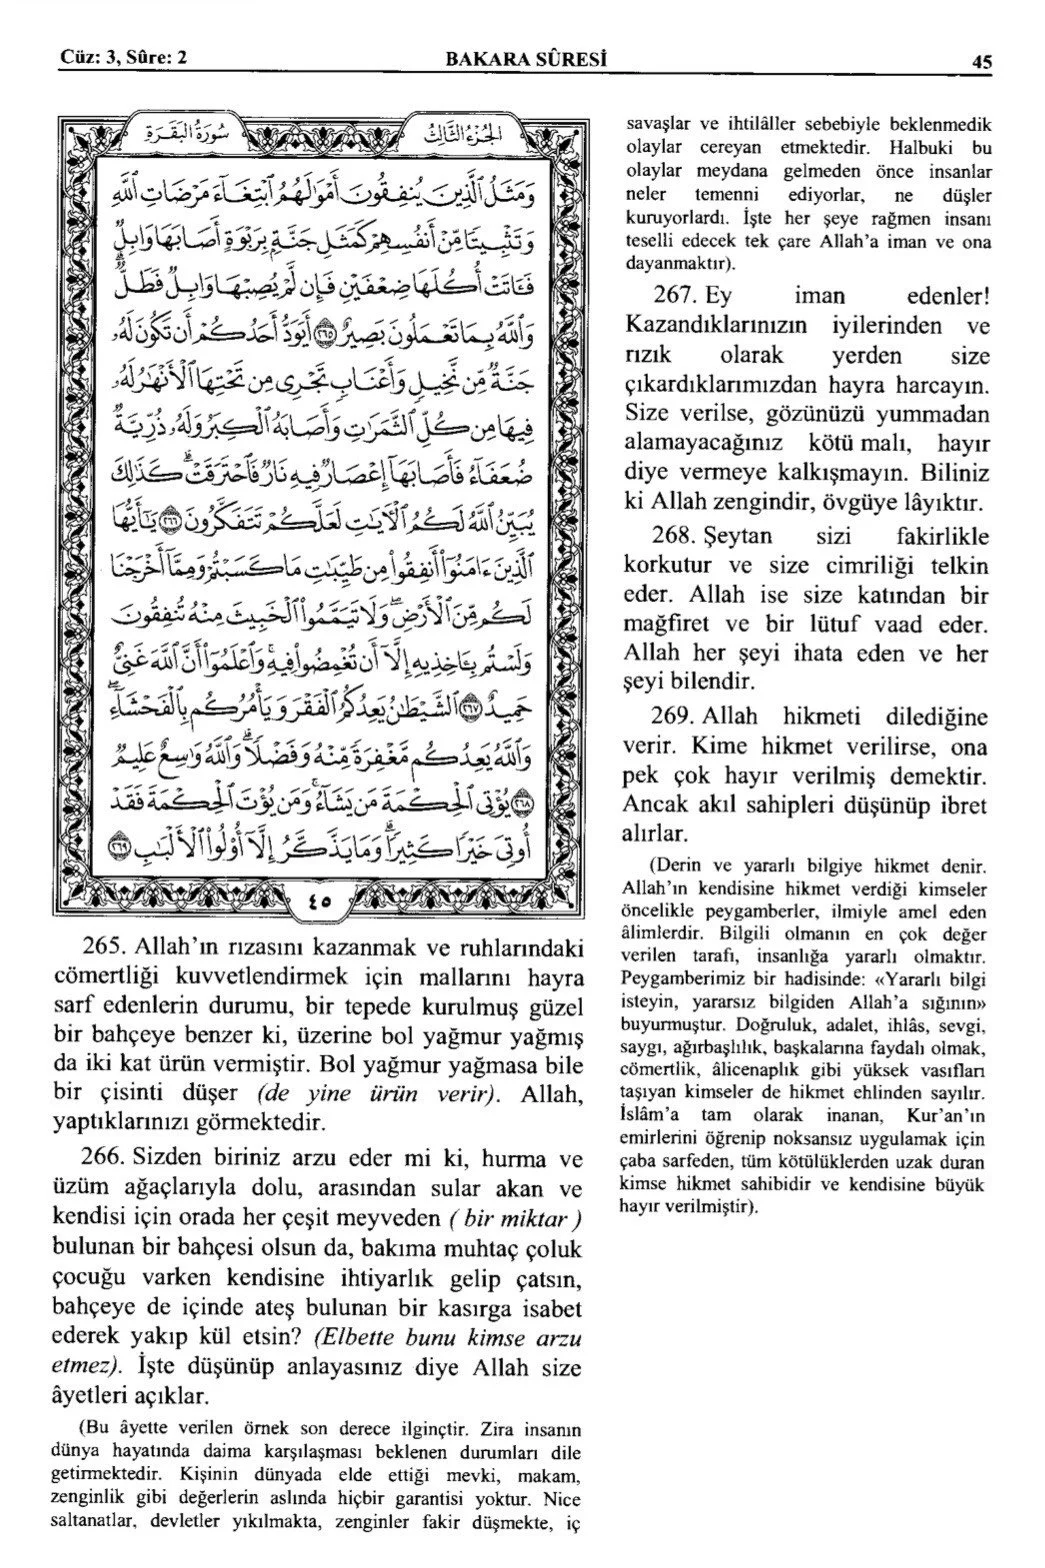 Cüz: 3, Sûre: 2
BAKARA SÛRESİ
45
سُورَةُ الْبَقَرَةِ
الْجُزْءُ الثَّالِثُ
وَمَثَلُ الَّذِينَ يُنْفِقُونَ أَمْوَالَهُمُ ابْتِغَاءَ مَرْضَاتِ اللَّهِ
وَتَثْبِيتًا مِنْ أَنْفُسِهِمْ كَمَثَلِ جَنَّةٍ بِرَبْوَةٍ أَصَابَهَا وَابِلٌ
فَآتَتْ أُكُلَهَا ضِعْفَيْنِ فَإِنْ لَمْ يُصِبْهَا وَابِلٌ فَطَلٌّ
وَاللَّهُ بِمَا تَعْمَلُونَ بَصِيرٌ ٢٦٥ أَيَوَدُّ أَحَدُكُمْ أَنْ تَكُونَ لَهُ
جَنَّةٌ مِنْ نَخِيلٍ وَأَعْنَابٍ تَجْرِي مِنْ تَحْتِهَا الْأَنْهَارُ لَهُ
فِيهَا مِنْ كُلِّ الثَّمَرَاتِ وَأَصَابَهُ الْكِبَرُ وَلَهُ ذُرِّيَّةٌ
ضُعَفَاءُ فَأَصَابَهَا إِعْصَارٌ فِيهِ نَارٌ فَاحْتَرَقَتْ كَذَلِكَ
يُبَيِّنُ اللَّهُ لَكُمُ الْآيَاتِ لَعَلَّكُمْ تَتَفَكَّرُونَ ٢٦٦ يَا أَيُّهَا
الَّذِينَ آمَنُوا أَنْفِقُوا مِنْ طَيِّبَاتِ مَا كَسَبْتُمْ وَمِمَّا أَخْرَجْنَا
لَكُمْ مِنَ الْأَرْضِ وَلَا تَيَمَّمُوا الْخَبِيثَ مِنْهُ تُنْفِقُونَ
وَلَسْتُمْ بِآخِذِيهِ إِلَّا أَنْ تُغْمِضُوا فِيهِ وَاعْلَمُوا أَنَّ اللَّهَ غَنِيٌّ
حَمِيدٌ ٢٦٧ الشَّيْطَانُ يَعِدُكُمُ الْفَقْرَ وَيَأْمُرُكُمْ بِالْفَحْشَاءِ
وَاللَّهُ يَعِدُكُمْ مَغْفِرَةً مِنْهُ وَفَضْلًا وَاللَّهُ وَاسِعٌ عَلِيمٌ
٢٦٨ يُؤْتِي الْحِكْمَةَ مَنْ يَشَاءُ وَمَنْ يُؤْتَ الْحِكْمَةَ فَقَدْ
أُوتِيَ خَيْرًا كَثِيرًا وَمَا يَذَّكَّرُ إِلَّا أُولُو الْأَلْبَابِ ٢٦٩
٤٥
265. Allah’ın rızasını kazanmak ve ruhlarındaki
cömertliği kuvvetlendirmek için mallarını hayra
sarf edenlerin durumu, bir tepede kurulmuş güzel
bir bahçeye benzer ki, üzerine bol yağmur yağmış
da iki kat ürün vermiştir. Bol yağmur yağmasa bile
bir çisinti düşer (de yine ürün verir). Allah,
yaptıklarınızı görmektedir.
266. Sizden biriniz arzu eder mi ki, hurma ve
üzüm ağaçlarıyla dolu, arasından sular akan ve
kendisi için orada her çeşit meyveden ( bir miktar )
bulunan bir bahçesi olsun da, bakıma muhtaç çoluk
çocuğu varken kendisine ihtiyarlık gelip çatsın,
bahçeye de içinde ateş bulunan bir kasırga isabet
ederek yakıp kül etsin? (Elbette bunu kimse arzu
etmez). İşte düşünüp anlayasınız diye Allah size
âyetleri açıklar.
(Bu âyette verilen örnek son derece ilginçtir. Zira insanın
dünya hayatında daima karşılaşması beklenen durumları dile
getirmektedir. Kişinin dünyada elde ettiği mevki, makam,
zenginlik gibi değerlerin aslında hiçbir garantisi yoktur. Nice
saltanatlar, devletler yıkılmakta, zenginler fakir düşmekte, iç
savaşlar ve ihtilâller sebebiyle beklenmedik
olaylar cereyan etmektedir. Halbuki bu
olaylar meydana gelmeden önce insanlar
neler temenni ediyorlar, ne düşler
kuruyorlardı. İşte her şeye rağmen insanı
teselli edecek tek çare Allah’a iman ve ona
dayanmaktır).
267. Ey iman edenler!
Kazandıklarınızın iyilerinden ve
rızık olarak yerden size
çıkardıklarımızdan hayra harcayın.
Size verilse, gözünüzü yummadan
alamayacağınız kötü malı, hayır
diye vermeye kalkışmayın. Biliniz
ki Allah zengindir, övgüye lâyıktır.
268. Şeytan sizi fakirlikle
korkutur ve size cimriliği telkin
eder. Allah ise size katından bir
mağfiret ve bir lütuf vaad eder.
Allah her şeyi ihata eden ve her
şeyi bilendir.
269. Allah hikmeti dilediğine
verir. Kime hikmet verilirse, ona
pek çok hayır verilmiş demektir.
Ancak akıl sahipleri düşünüp ibret
alırlar.
(Derin ve yararlı bilgiye hikmet denir.
Allah’ın kendisine hikmet verdiği kimseler
öncelikle peygamberler, ilmiyle amel eden
âlimlerdir. Bilgili olmanın en çok değer
verilen tarafı, insanlığa yararlı olmaktır.
Peygamberimiz bir hadisinde: «Yararlı bilgi
isteyin, yararsız bilgiden Allah’a sığının»
buyurmuştur. Doğruluk, adalet, ihlâs, sevgi,
saygı, ağırbaşlılık, başkalarına faydalı olmak,
cömertlik, âlicenaplık gibi yüksek vasıfları
taşıyan kimseler de hikmet ehlinden sayılır.
İslâm’a tam olarak inanan, Kur’an’ın
emirlerini öğrenip noksansız uygulamak için
çaba sarfeden, tüm kötülüklerden uzak duran
kimse hikmet sahibidir ve kendisine büyük
hayır verilmiştir).